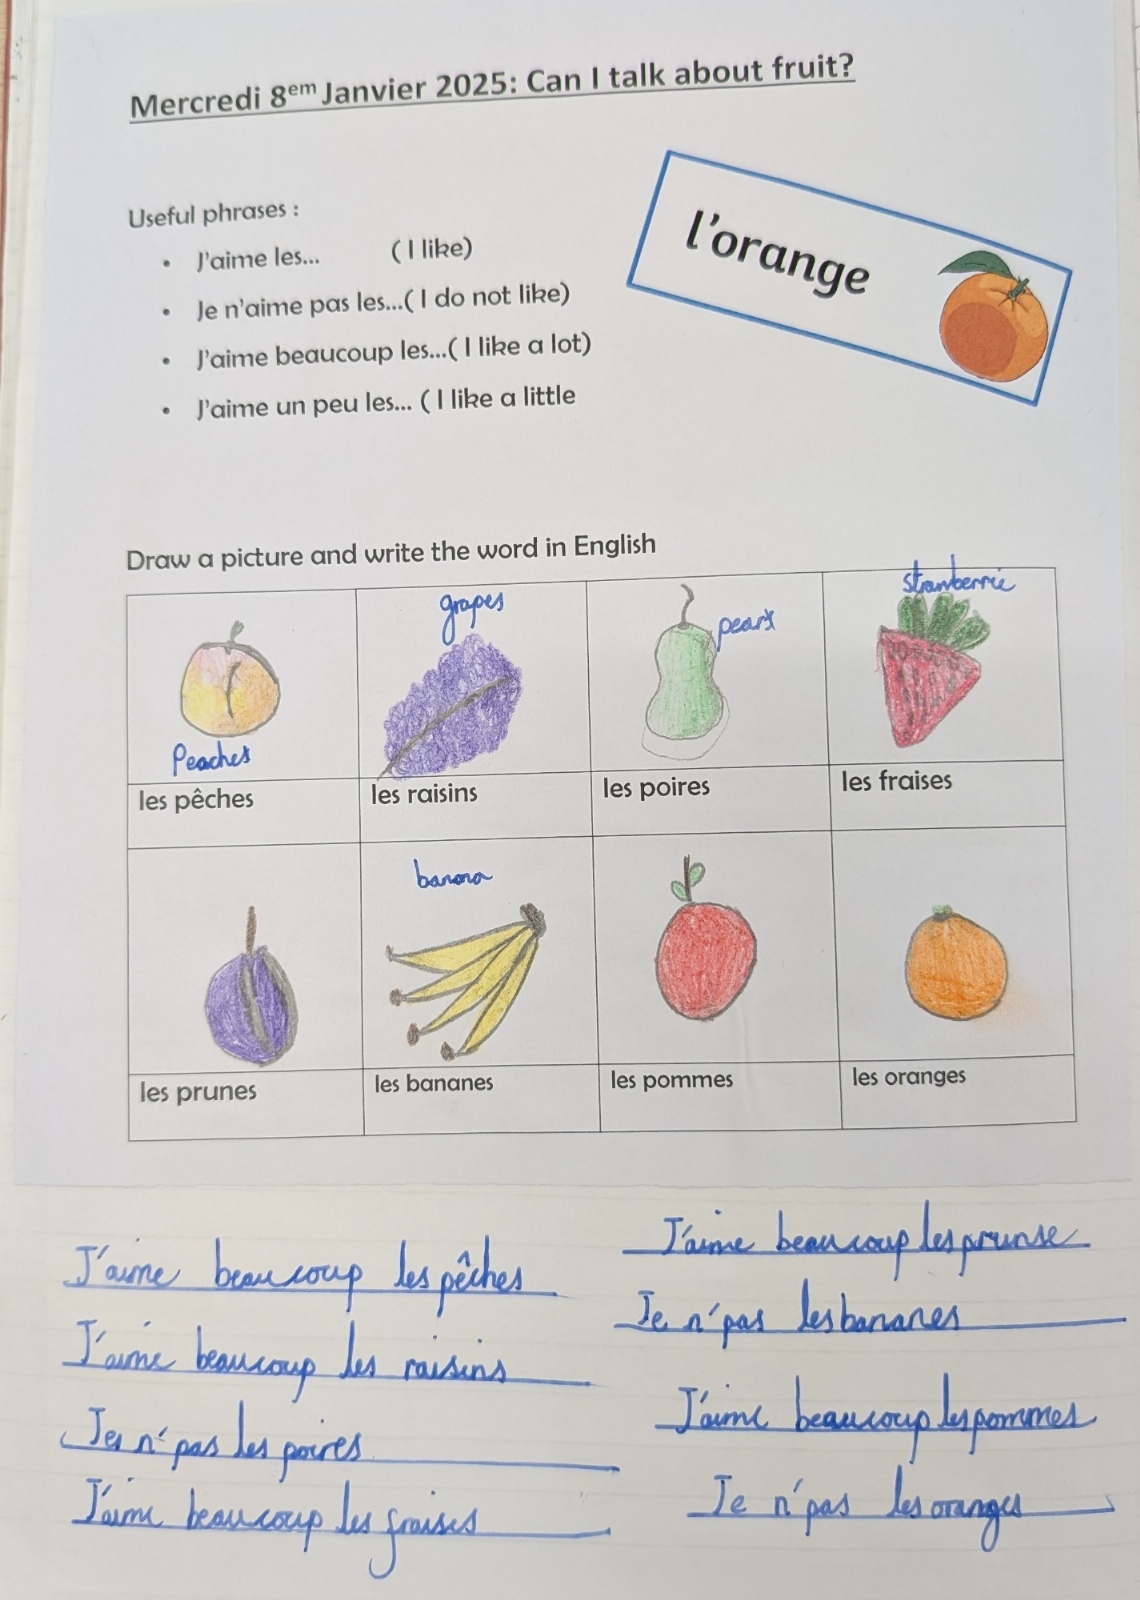 Mercredi 8em Janvier 2025: Can I talk about fruit?
l'orange
Useful phrases :
• J'aime les... ( I like)
• Je n'aime pas les...( I do not like)
• J'aime beaucoup les...( I like a lot)
• J'aime un peu les... ( I like a little
Draw a picture and write the word in English
Peaches
grapes
pears
strawberrie
les pêches
les raisins
les poires
les fraises
banana
les prunes
les bananes
les pommes
les oranges
J'aime beaucoup les pêches
J'aime beaucoup les raisins
Je n'pas les poires
J'aime beaucoup les fraises
J'aime beaucoup les prunse
Je n'pas les bananes
J'aime beaucoup les pommes
Je n'pas les oranges